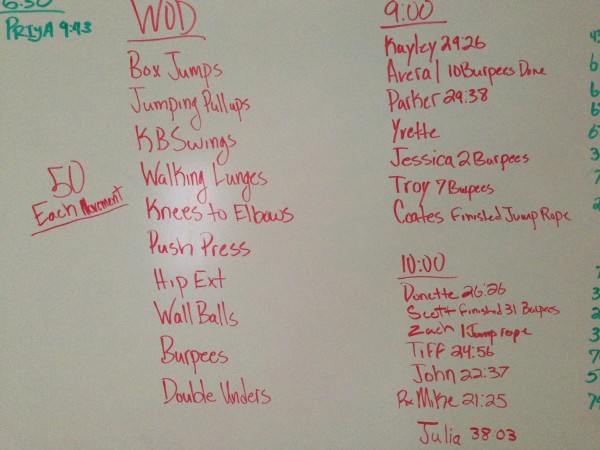 6:30
PRIYA 9:43
WOD
Box Jumps
Jumping Pullups
KB Swings
Walking Lunges
Knees to Elbows
Push Press
Hip Ext
Wall Balls
Burpees
Double Unders
50
Each Movement
9:00
Kayley 29:26
Averal 10 Burpees Done
Parker 29:38
Yvette
Jessica 2 Burpees
Troy 7 Burpees
Coates Finished Jump Rope
10:00
Donette 26:26
Scott finished 31 Burpees
Zach 1 Jump rope
Tiff 24:56
John 22:37
Rx Mike 21:25
Julia 38:03